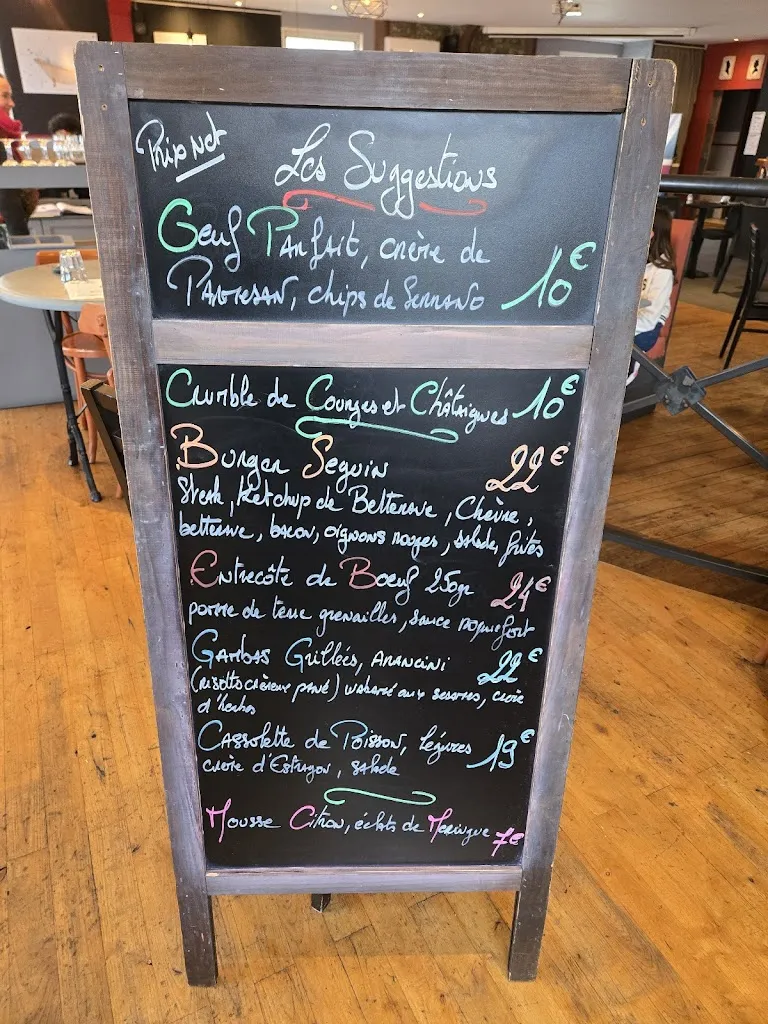 Prix Net
Les Suggestions
Oeuf Parfait, crème de
Parmesan, chips de Serrano 10€
Crumble de Courges et Châtaignes 10€
Burger Seguin 22€
Steak, Ketchup de Betterave, Chèvre,
betterave, bacon, oignons rouges, salade, frites
Entrecôte de Boeuf 250gr 24€
pomme de terre grenailles, sauce roquefort
Gambas Grillées, Arancini 22€
(risotto crèmeux pané) wakamé aux sésames, crème
d'herbes
Cassolette de Poisson, légumes 19€
crème d'Estragon, salade
Mousse Citron, éclats de Meringue 7€